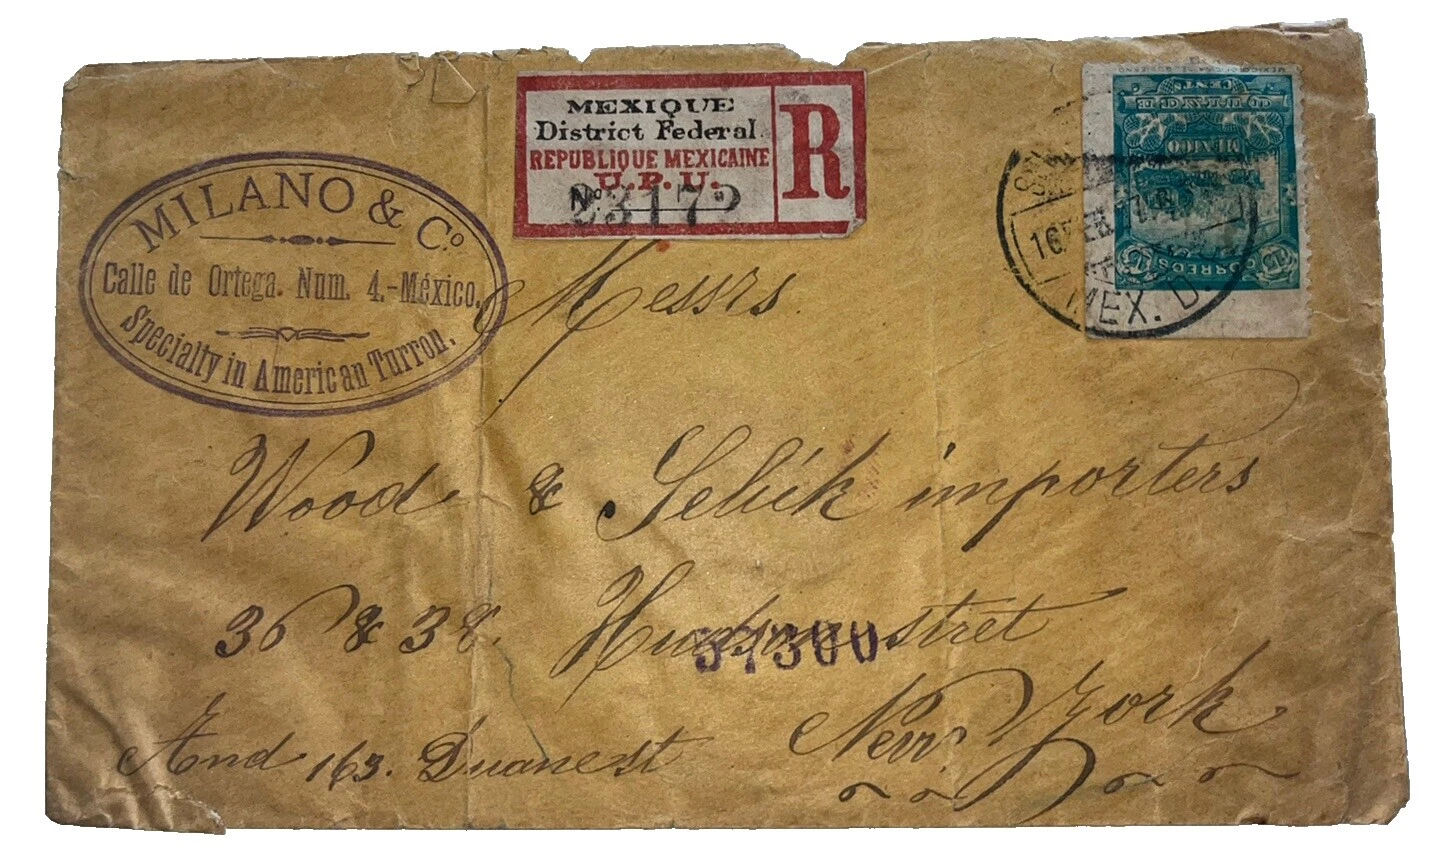 MILANO & Co.
Calle de Ortega. Num. 4.-México.
Specialty in American Turron.
MEXIQUE
District Federal.
REPUBLIQUE MEXICAINE
U.P.U.
No 23172
R
CORREOS
MEXICO
CENTS
16 FEB
MEX. D
Messrs
Wood & Selick importers
36 & 38. Hudson stret
37300
New York
And 163. Duane st